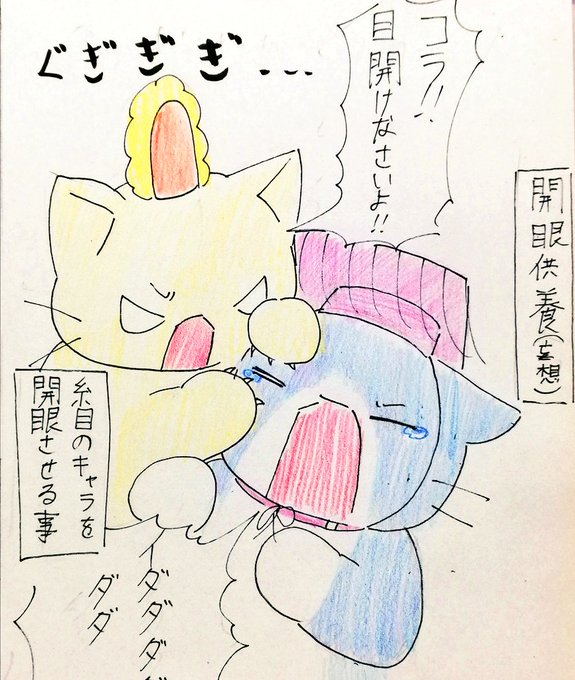 ぐぎぎぎ...
コラ!!
目開けなさいよ!!
開眼供養(妄想)
糸目のキャラを
開眼させる事
イダダダダ
ダダ